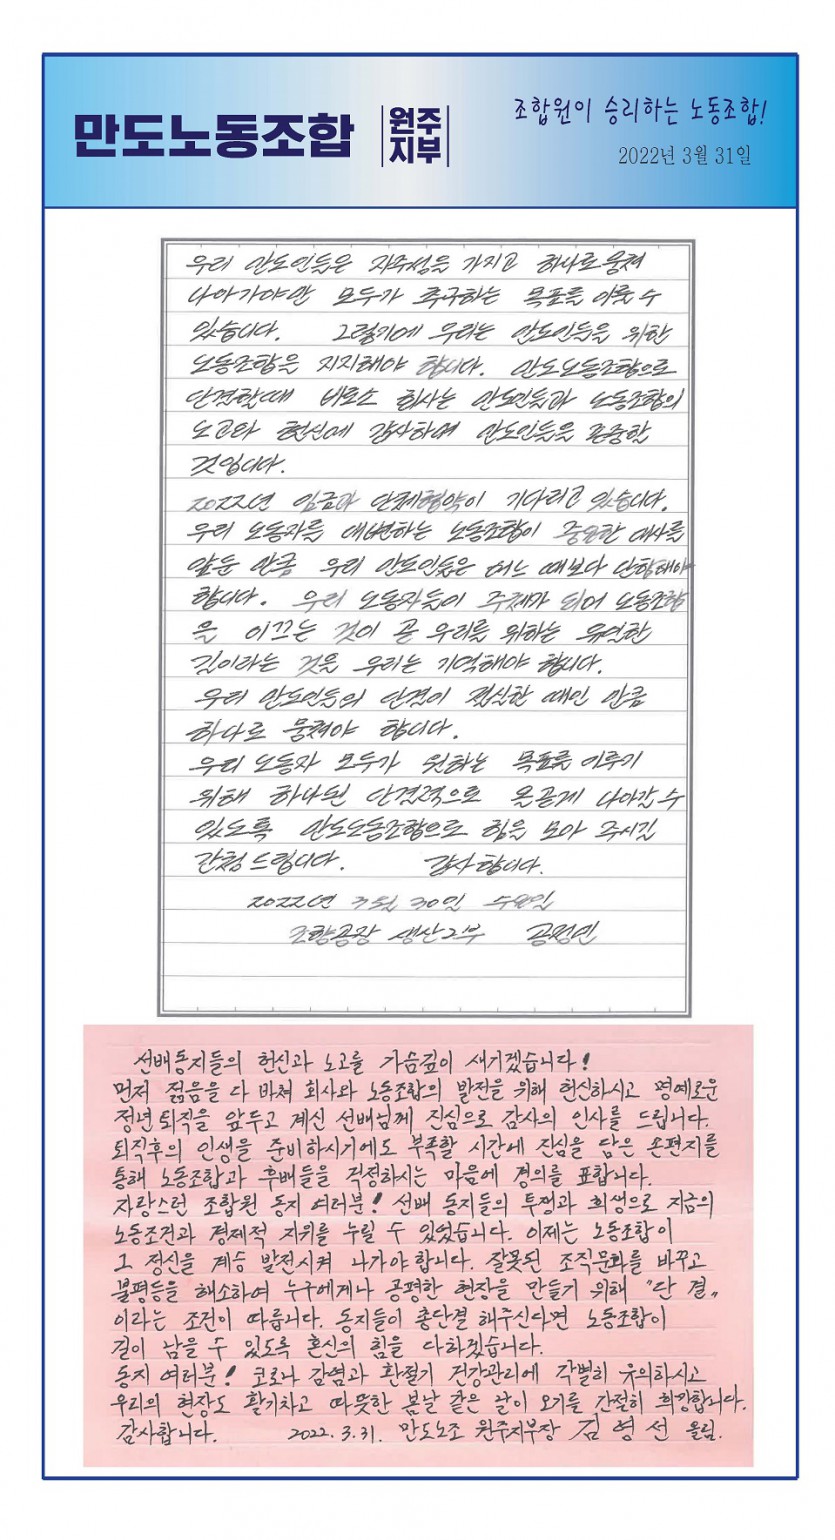 만도노동조합 원주지부
조합원이 승리하는 노동조합!
2022년 3월 31일
우리 만도인들은 자주성을 가지고 하나로 뭉쳐
나아가야만 모두가 추구하는 목표를 이룰 수
있습니다. 그렇기에 우리는 만도인들을 위한
노동조합을 지지해야 합니다. 만도노동조합으로
단결할때 비로소 회사는 만도인들과 노동조합의
노고와 헌신에 감사하며 만도인들을 존중할
것입니다.
2022년 임금과 단체협약이 기다리고 있습니다.
우리 노동자를 대변하는 노동조합이 중요한 대사를
앞둔 만큼 우리 만도인들은 어느 때보다 단합해야
합니다. 우리 노동자들이 주체가 되어 노동조합
을 이끄는 것이 곧 우리를 위하는 유일한
길이라는 것을 우리는 기억해야 합니다.
우리 만도인들의 단결이 절실한 때인 만큼
하나로 뭉쳐야 합니다.
우리 노동자 모두가 원하는 목표를 이루기
위해 하나된 단결력으로 올곧게 나아갈 수
있도록 만도노동조합으로 힘을 모아 주시길
간청드립니다. 감사합니다.
2022년 3월 30일 수요일
조향공장 생산2부
선배동지들의 헌신과 노고를 가슴깊이 새기겠습니다!
먼저 젊음을 다 바쳐 회사와 노동조합의 발전을 위해 헌신하시고 명예로운
정년퇴직을 앞두고 계신 선배님께 진심으로 감사의 인사를 드립니다.
퇴직후의 인생을 준비하시기에도 부족할 시간에 진심을 담은 손편지를
통해 노동조합과 후배들을 걱정하시는 마음에 경의를 표합니다.
자랑스런 조합원 동지 여러분! 선배 동지들의 투쟁과 희생으로 지금의
노동조건과 경제적 지위를 누릴 수 있었습니다. 이제는 노동조합이
그 정신을 계승 발전시켜 나가야 합니다. 잘못된 조직문화를 바꾸고
불평등을 해소하여 누구에게나 공평한 현장을 만들기 위해 "단 결"
이라는 조건이 따릅니다. 동지들이 총단결 해주신다면 노동조합이
길이 남을 수 있도록 혼신의 힘을 다하겠습니다.
동지 여러분! 코로나 감염과 환절기 건강관리에 각별히 유의하시고
우리의 현장도 활기차고 따뜻한 봄날 같은 날이 오기를 간절히 희망합니다.
감사합니다. 2022.3.31. 만도노조 원주지부장 김 병 선 올림.